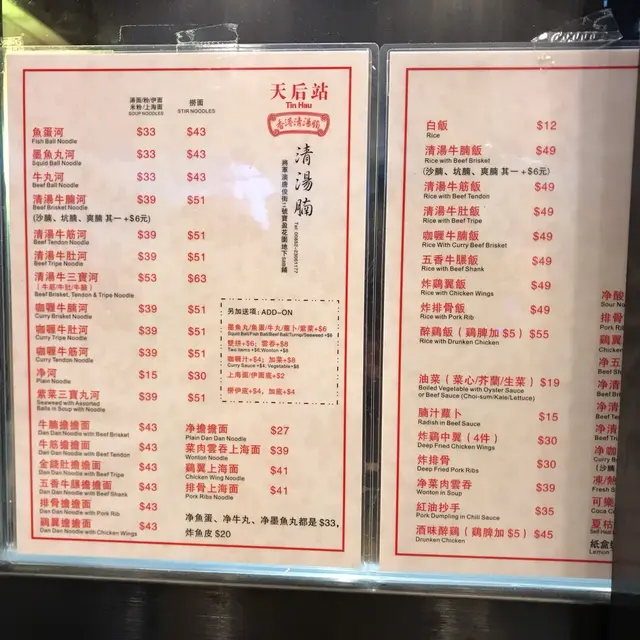 天后站
Tin Hau
香港清湯腩
清湯腩
湯面/粉/伊面
米粉/上海面
SOUP NOODLES
撈面
STIR NOODLES
魚蛋河 $33 $43
Fish Ball Noodle
墨魚丸河 $33 $43
Squid Ball Noodle
牛丸河 $33 $43
Beef Ball Noodle
清湯牛腩河 $39 $51
Beef Brisket Noodle
(沙腩、坑腩、爽腩 其一 +$6元)
清湯牛筋河 $39 $51
Beef Tendon Noodle
清湯牛肚河 $39 $51
Beef Tripe Noodle
清湯牛三寶河 $53 $63
(牛筋/牛肚/牛腩)
Beef Brisket, Tendon & Tripe Noodle
咖喱牛腩河 $39 $51
Curry Brisket Noodle
咖喱牛肚河 $39 $51
Curry Tripe Noodle
咖喱牛筋河 $39 $51
Curry Tendon Noodle
净河 $15 $30
Plain Noodle
紫菜三寶丸河 $39 $51
Seaweed with Assorted
Balls in Soup with Noodle
另加送項: ADD-ON
墨魚丸/魚蛋/牛丸/蘿卜/紫菜+$6
雙拼+$6; 雲吞+$8
Two items +$6;Wonton +$8
咖喱汁+$4; 加菜+$8
Curry Sauce +$4; Vegetable+$8
上海面/伊面底+$2
撈伊底+$4, 加底+$4
牛腩擔擔面 $43
Dan Dan Noodle with Beef Brisket
牛筋擔擔面 $43
Dan Dan Noodle with Beef Tendon
金錢肚擔擔面 $43
Dan Dan Noodle with Beef Tripe
五香牛𦟌擔擔面 $43
Dan Dan Noodle with Beef Shank
排骨擔擔面 $43
Dan Dan Noodle with Pork Rib
鷄翼擔擔面 $43
Dan Dan Noodle with Chicken Wings
净擔擔面 $27
Plain Dan Dan Noodle
菜肉雲吞上海面 $39
Wonton Noodle
鷄翼上海面 $41
Chicken Wing Noodle
排骨上海面 $41
Pork Ribs Noodle
净魚蛋、净牛丸、净墨魚丸都是 $33,
炸魚皮 $20
白飯 $12
Rice
清湯牛腩飯 $49
Rice with Beef Brisket
(沙腩、坑腩、爽腩 其一 +$6元)
清湯牛筋飯 $49
Rice with Beef Tendon
清湯牛肚飯 $49
Rice with Beef Tripe
咖喱牛腩飯 $49
Rice With Curry Beef Brisket
五香牛𦟌飯 $49
Rice with Beef Shank
炸鷄翼飯 $49
Rice with Chicken Wings
炸排骨飯 $49
Rice with Pork Rib
醉鷄飯(鷄脾加 $5) $55
Rice with Drunken Chicken
油菜(菜心/芥蘭/生菜) $19
Boiled Vegetable with Oyster Sauce
or Beef Sauce (Choi-sum/Kale/Lettuce)
腩汁蘿卜 $15
Radish in Beef Sauce
炸鷄中翼(4件) $30
Deep Fried Chicken Wings
炸排骨 $30
Deep Fried Pork Ribs
净菜肉雲吞 $39
Wonton in Soup
紅油抄手 $35
Pork Dumpling in Chili Sauce
酒味醉鷄(鷄脾加 $5) $45
Drunken Chicken